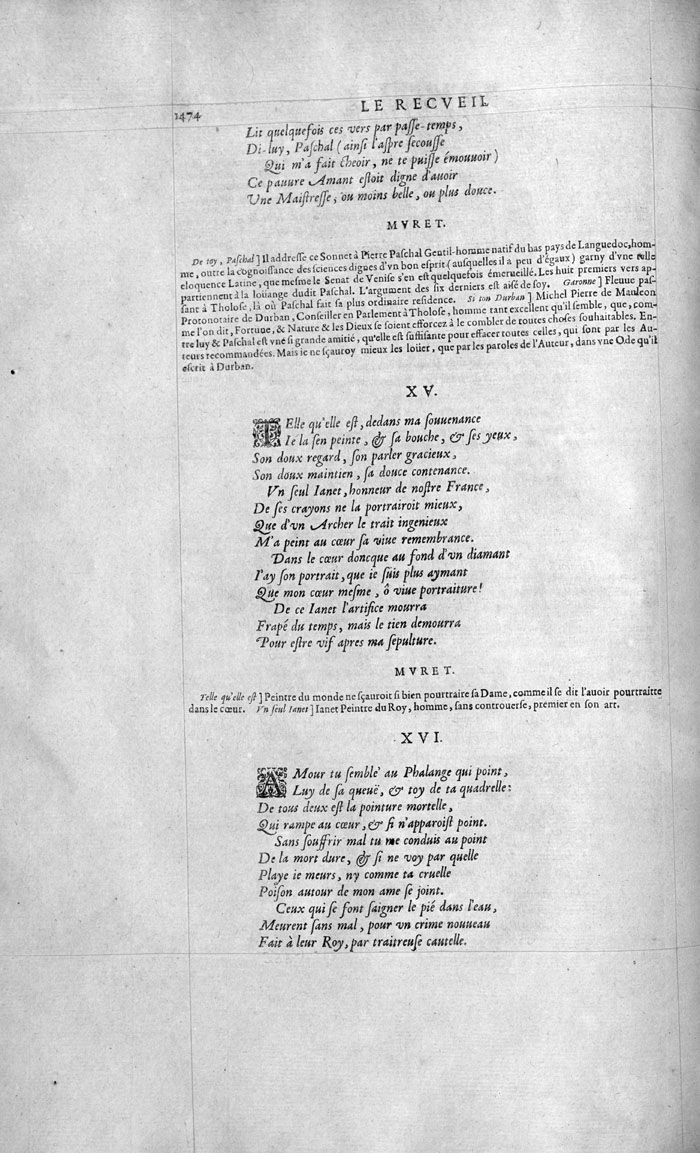 1474
LE RECVEIL
Lit quelquefois ces vers par paſſe-temps,
Di-luy, Paſchal (ainſi l'aſpre ſecouſſe
Qui m'a fait cheoir, ne te puiſſe émouuoir)
Ce pauure Amant eſtoit digne d'auoir
Vne Maiſtreſſe, ou moins belle, ou plus douce.
MVRET.
De toy, Paſchal] Il addreſſe ce Sonnet à Pierre Paſchal Gentil-homme natif du bas pays de Languedoc, hom-
me, outre la cognoiſſance des ſciences dignes d'vn bon eſprit (auſquelles il a peu d'égaux) garny d'vne telle
eloquence Latine, que meſme le Senat de Veniſe s'en eſt quelquefois émerueillé. Les huit premiers vers ap-
partiennent à la loüange dudit Paſchal. L'argument des ſix derniers eſt aiſé de ſoy. Garonne] Fleuue paſ-
ſant à Tholoſe, là où Paſchal fait ſa plus ordinaire reſidence. Si ton Durban] Michel Pierre de Mauleon
Protonotaire de Durban, Conſeiller en Parlement à Tholoſe, homme tant excellent qu'il ſemble, que, com-
me l'on dit, Fortune, & Nature & les Dieux ſe ſoient efforcez à le combler de toutes choſes ſouhaitables. En-
tre luy & Paſchal eſt vne ſi grande amitié, qu'elle eſt ſuffiſante pour effacer toutes celles, qui ſont par les Au-
teurs recommandées. Mais ie ne ſçauroy mieux les loüer, que par les paroles de l'Auteur, dans vne Ode qu'il
eſcrit à Durban.
XV.
TElle qu'elle eſt, dedans ma ſouuenance
Ie la ſen peinte, & ſa bouche, & ſes yeux,
Son doux regard, ſon parler gracieux,
Son doux maintien, ſa douce contenance.
Vn ſeul Ianet, honneur de noſtre France,
De ſes crayons ne la portrairoit mieux,
Que d'vn Archer le trait ingenieux
M'a peint au cœur ſa viue remembrance.
Dans le cœur doncque au fond d'vn diamant
I'ay ſon portrait, que ie ſuis plus aymant
Que mon cœur meſme, ô viue portraiture!
De ce Ianet l'artifice mourra
Frapé du temps, mais le tien demourra
Pour eſtre vif apres ma ſepulture.
MVRET.
Telle qu'elle eſt] Peintre du monde ne ſçauroit ſi bien pourtraire ſa Dame, comme il ſe dit l'auoir pourtraitte
dans le cœur. Vn ſeul Ianet] Ianet Peintre du Roy, homme, ſans controuerſe, premier en ſon art.
XVI.
AMour tu ſemble' au Phalange qui point,
Luy de ſa queuë, & toy de ta quadrelle:
De tous deux eſt la pointure mortelle,
Qui rampe au cœur, & ſi n'apparoiſt point.
Sans ſouffrir mal tu me conduis au point
De la mort dure, & ſi ne voy par quelle
Playe ie meurs, ny comme ta cruelle
Poiſon autour de mon ame ſe joint.
Ceux qui ſe font ſaigner le pié dans l'eau,
Meurent ſans mal, pour vn crime nouueau
Fait à leur Roy, par traitreuſe cautelle.